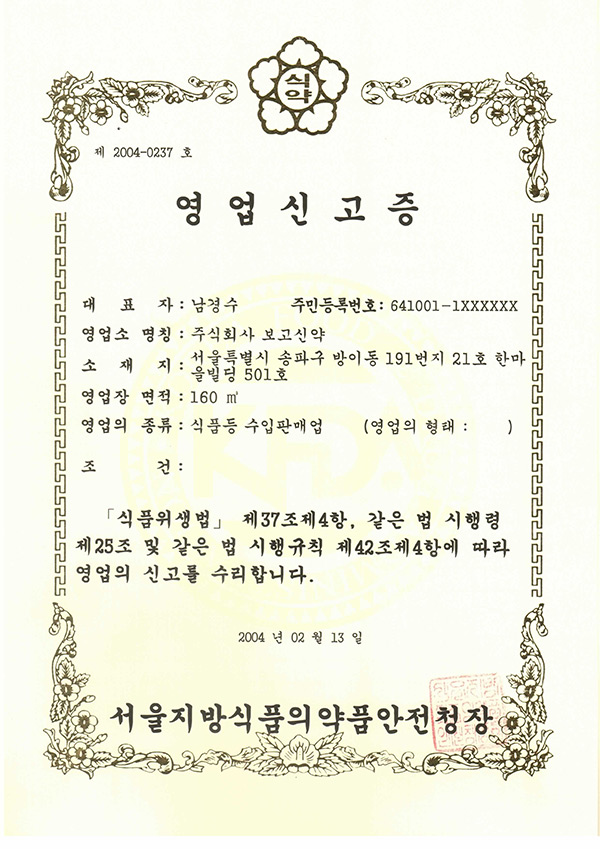 식약
제 2004-0237 호
영업신고증
대 표 자 : 남경수 주민등록번호: 641001-1XXXXXX
영업소 명칭 : 주식회사 보고신약
소 재 지 : 서울특별시 송파구 방이동 191번지 21호 한마
을빌딩 501호
영업장 면적 : 160 ㎡
영업의 종류 : 식품등 수입판매업 (영업의 형태 : )
조 건 :
「식품위생법」 제37조제4항, 같은 법 시행령
제25조 및 같은 법 시행규칙 제42조제4항에 따라
영업의 신고를 수리합니다.
2004 년 02 월 13 일
서울지방식품의약품안전청장
KFDA